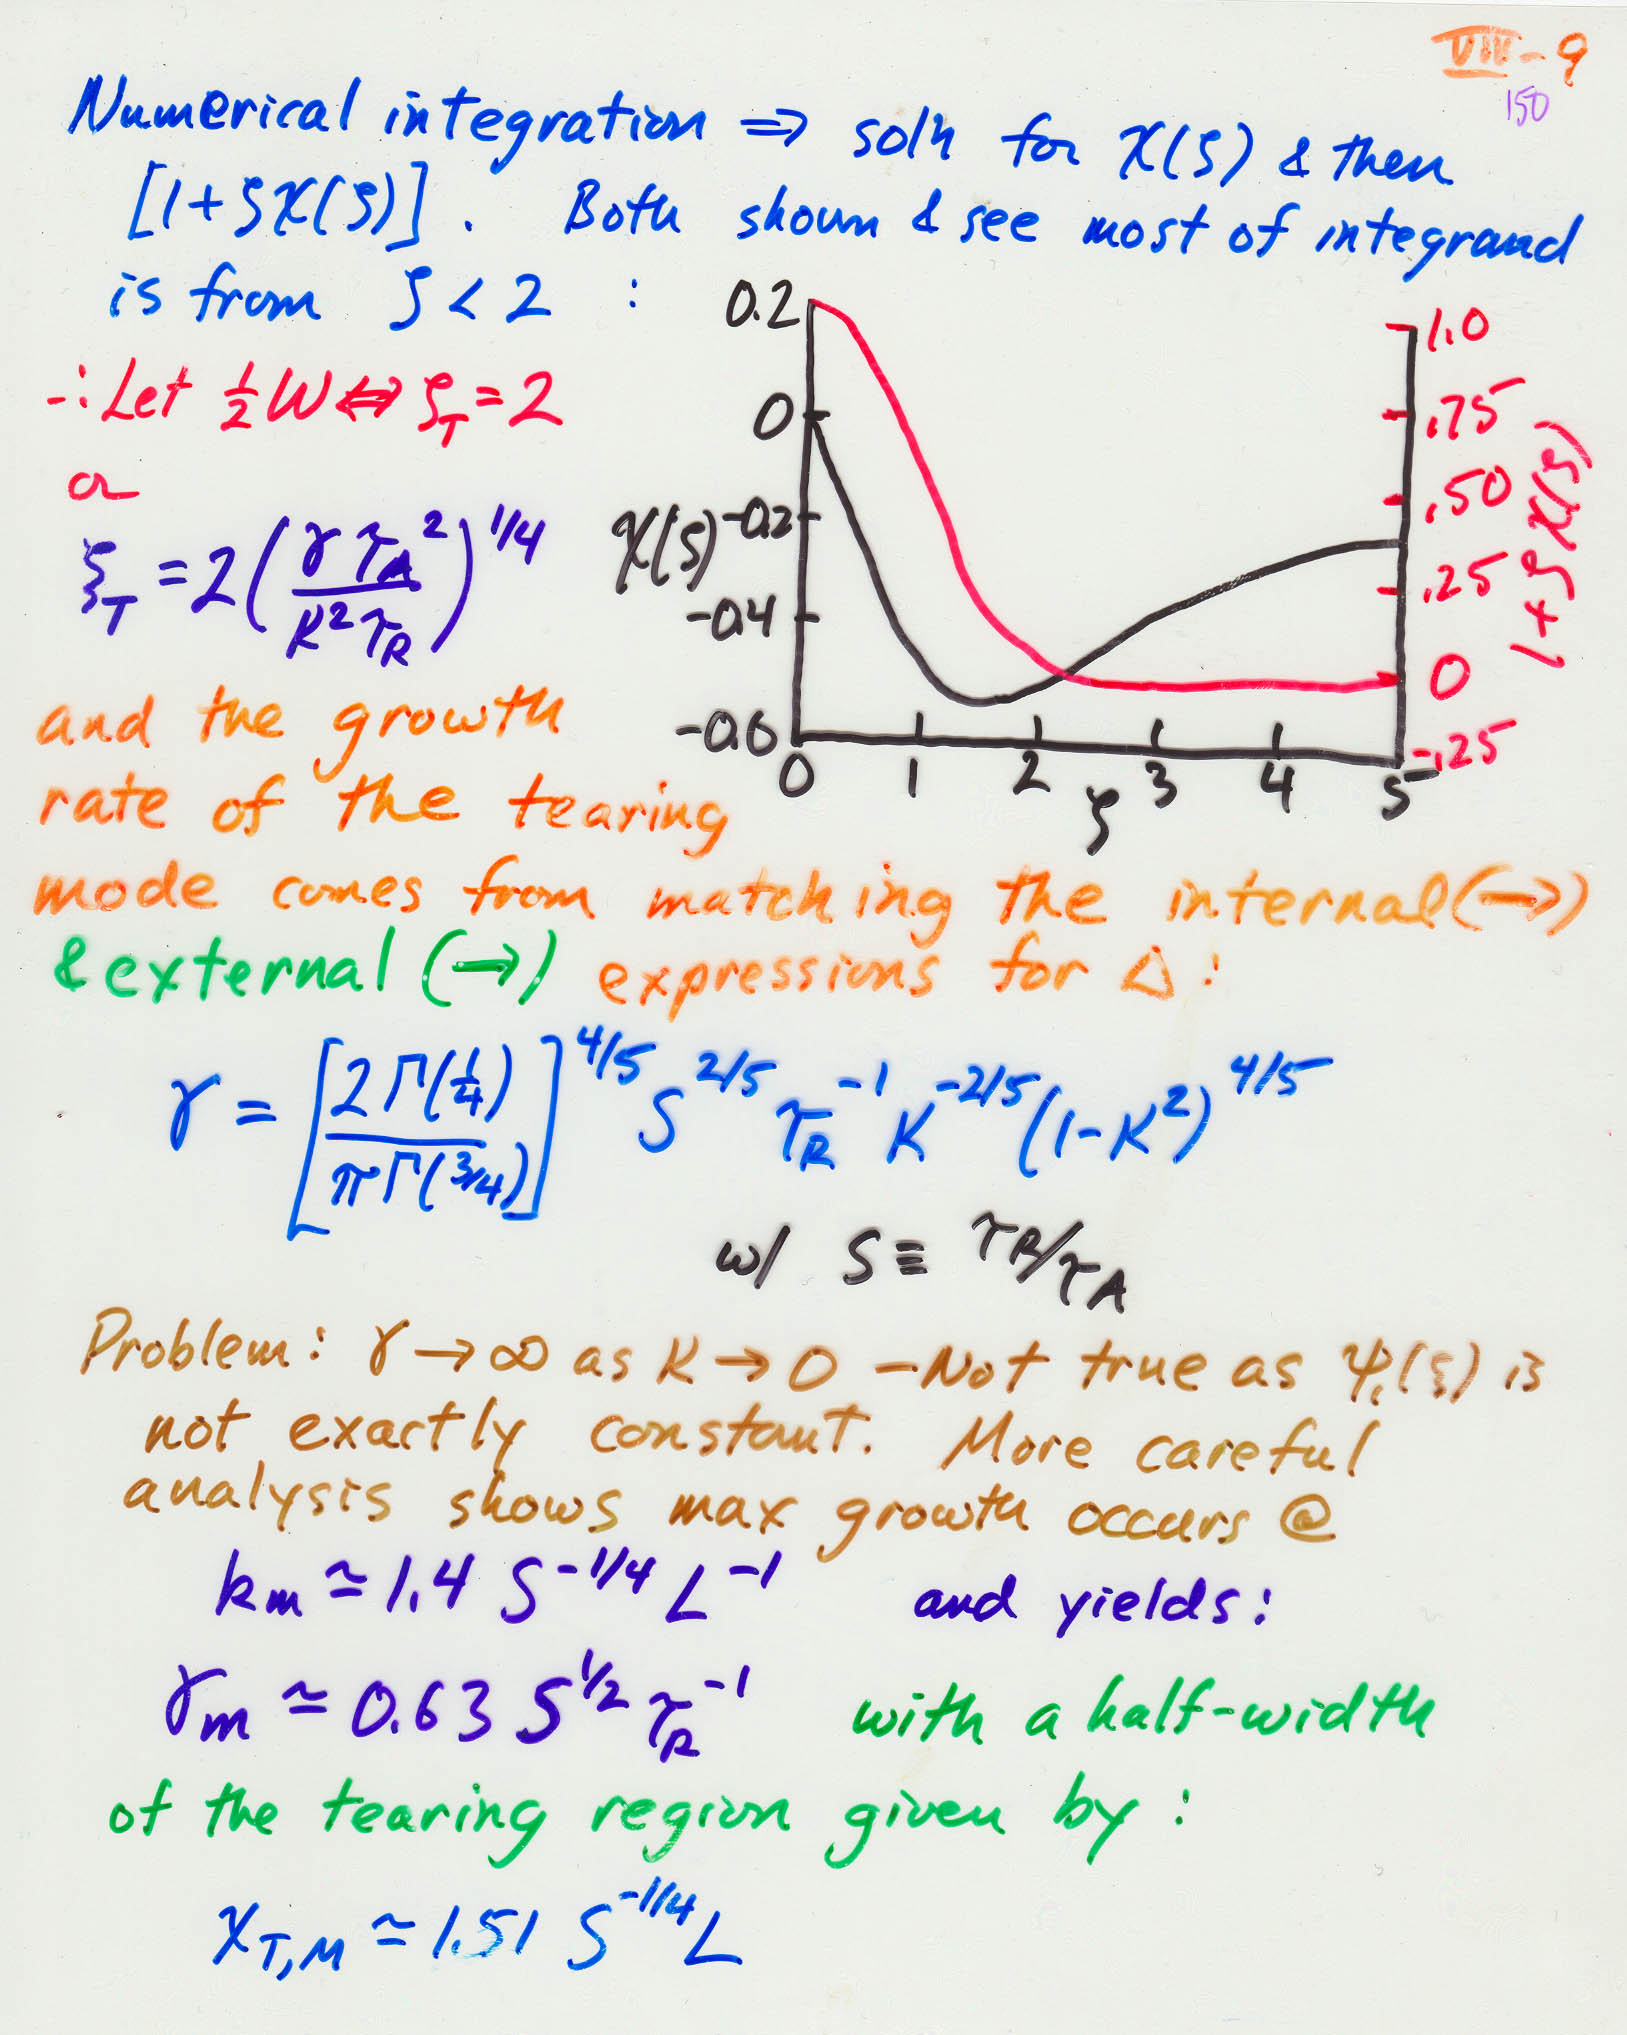 VIII-9
150
Numerical integration ⇒ soln for χ(ζ) & then
[1+ζχ(ζ)]. Both shown & see most of integrand
is from ζ < 2 :
∴ Let ½W ⇔ ζ_T = 2
or
ξ_T = 2(γ τ_A² / K² τ_R)^{1/4}
0.2
0
-0.2
-0.4
-0.6
χ(ζ)
0 1 2 3 4 5
ζ
1.0
.75
.50
.25
0
-.25
1+ζχ(ζ)
and the growth
rate of the tearing
mode comes from matching the internal (→)
& external (→) expressions for Δ :
γ = [2Γ(1/4) / πΓ(3/4)]^{4/5} S^{2/5} τ_R^{-1} K^{-2/5} (1-K²)^{4/5}
w/ S ≡ τ_R/τ_A
Problem: γ → ∞ as K → 0 – Not true as ψ₁(ξ) is
not exactly constant. More careful
analysis shows max growth occurs @
k_m ≃ 1.4 S^{-1/4} L^{-1} and yields:
γ_m ≃ 0.63 S^{1/2} τ_R^{-1} with a half-width
of the tearing region given by :
x_{T,M} ≃ 1.51 S^{-1/4} L